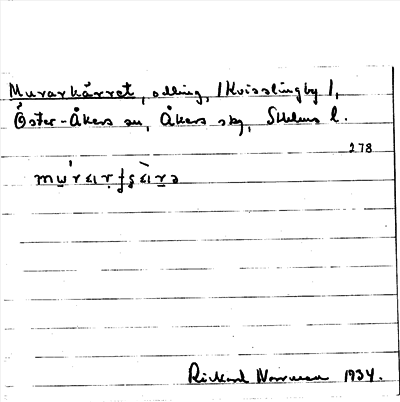 Murarkärret, odling, /Kvisslingby/,
Öster-Åkers sn, Åkers skg, Sthlms l.
278
Rickard Norman 1934.